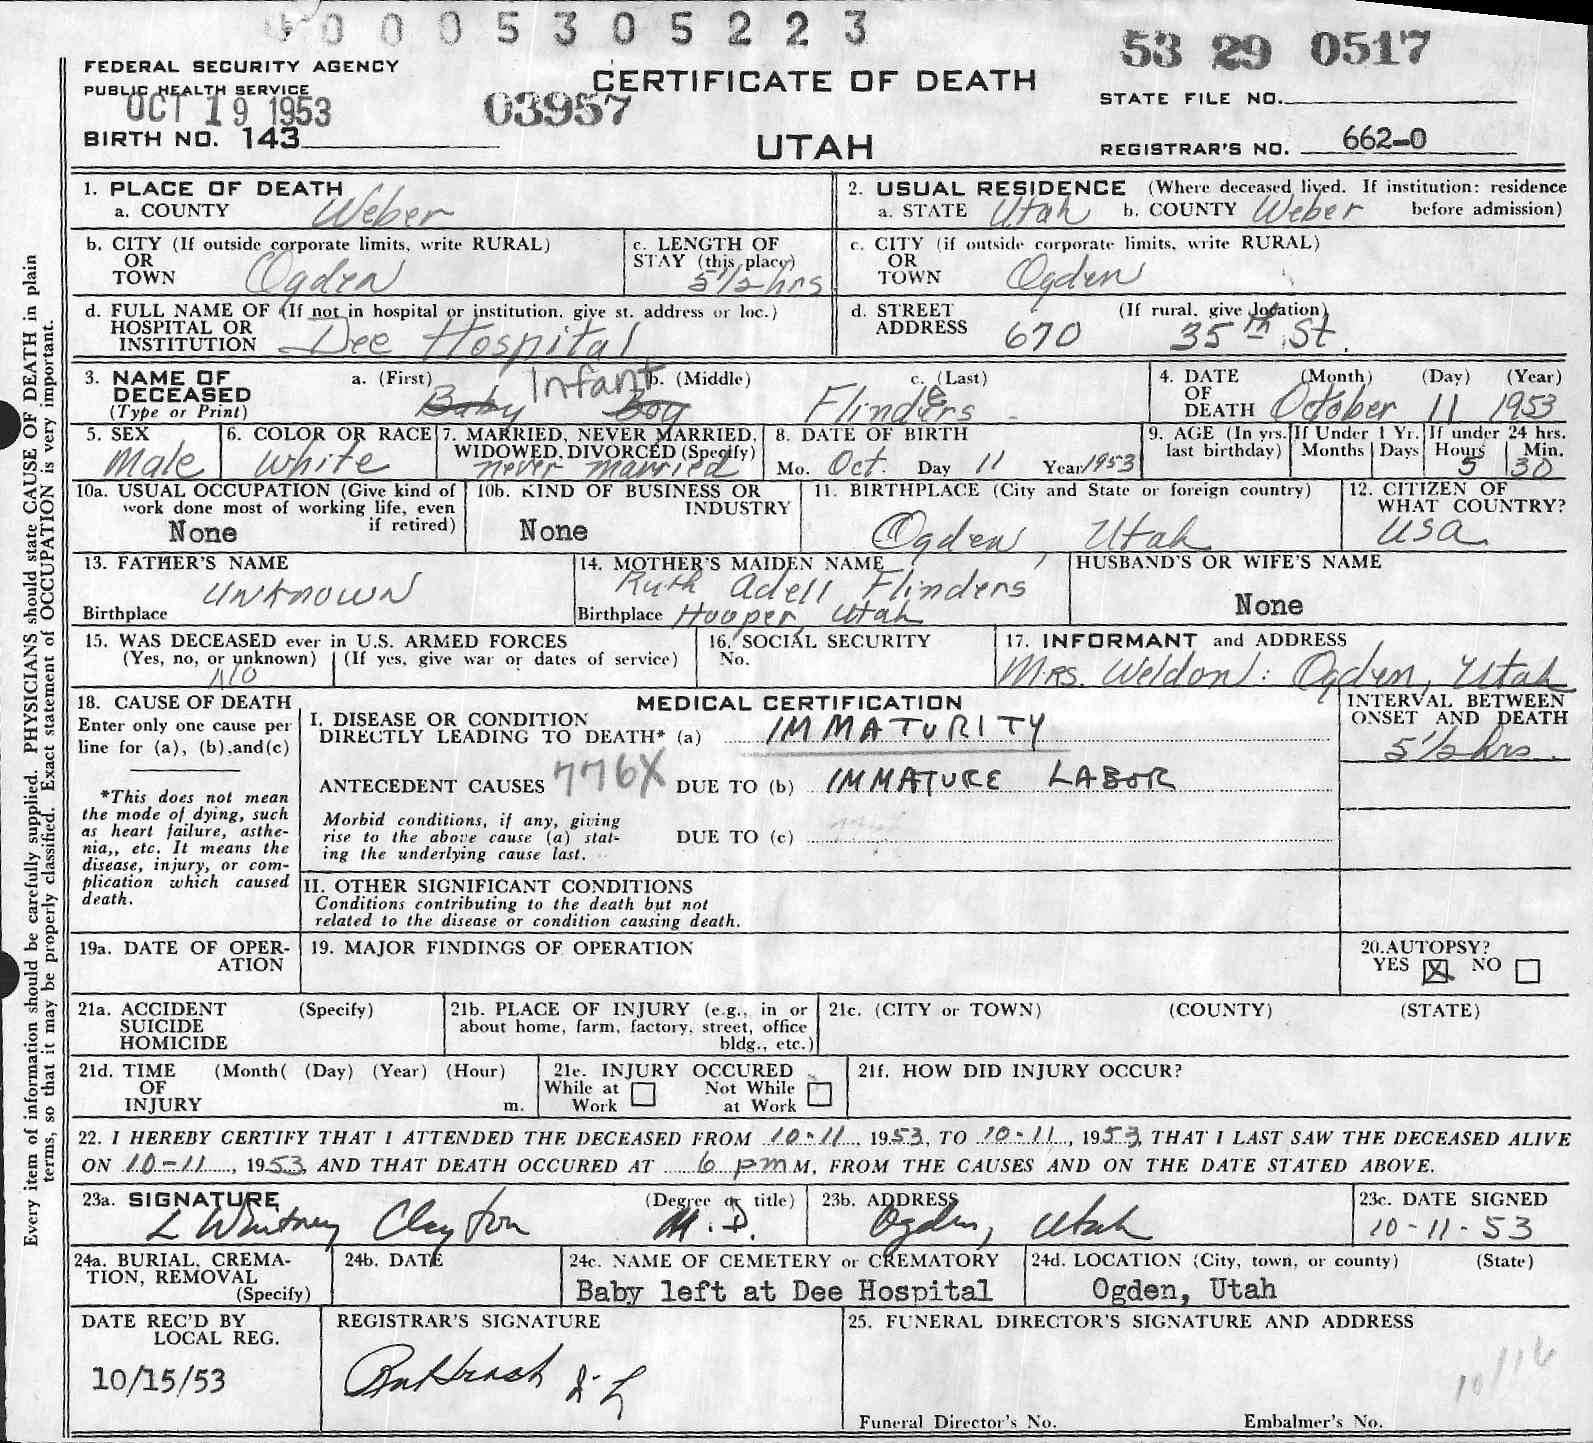 0 0 0 5 3 0 5 2 2 3
53 29 0517
FEDERAL SECURITY AGENCY
PUBLIC HEALTH SERVICE
OCT 19 1953
03957
CERTIFICATE OF DEATH
STATE FILE NO.
BIRTH NO. 143
UTAH
REGISTRAR'S NO. 662-0
1. PLACE OF DEATH
a. COUNTY Weber
2. USUAL RESIDENCE (Where deceased lived. If institution: residence before admission)
a. STATE Utah b. COUNTY Weber
b. CITY (If outside corporate limits, write RURAL) OR TOWN Ogden
c. LENGTH OF STAY (this place) 5 1/2 hrs
c. CITY (if outside corporate limits, write RURAL) OR TOWN Ogden
d. FULL NAME OF (If not in hospital or institution, give st. address or loc.) HOSPITAL OR INSTITUTION Dee Hospital
d. STREET ADDRESS (If rural, give location) 670 35th St.
3. NAME OF DECEASED (Type or Print)
a. (First) b. (Middle) c. (Last)
Baby Infant Boy Flinders
4. DATE OF DEATH (Month) (Day) (Year)
October 11 1953
5. SEX Male
6. COLOR OR RACE White
7. MARRIED, NEVER MARRIED, WIDOWED, DIVORCED (Specify) never married
8. DATE OF BIRTH
Mo. Oct. Day 11 Year 1953
9. AGE (In yrs. last birthday) If Under 1 Yr. Months Days If under 24 hrs. Hours 5 Min. 30
10a. USUAL OCCUPATION (Give kind of work done most of working life, even if retired) None
10b. KIND OF BUSINESS OR INDUSTRY None
11. BIRTHPLACE (City and State or foreign country) Ogden, Utah
12. CITIZEN OF WHAT COUNTRY? USA
13. FATHER'S NAME Unknown
Birthplace
14. MOTHER'S MAIDEN NAME Ruth Adell Flinders
Birthplace Hooper, Utah
HUSBAND'S OR WIFE'S NAME None
15. WAS DECEASED ever in U.S. ARMED FORCES
(Yes, no, or unknown) (If yes, give war or dates of service)
No
16. SOCIAL SECURITY No.
17. INFORMANT and ADDRESS
Mrs. Weldon: Ogden, Utah
18. CAUSE OF DEATH
Enter only one cause per line for (a), (b).and(c)
*This does not mean the mode of dying, such as heart failure, asthenia,, etc. It means the disease, injury, or complication which caused death.
MEDICAL CERTIFICATION
INTERVAL BETWEEN ONSET AND DEATH
I. DISEASE OR CONDITION DIRECTLY LEADING TO DEATH* (a) IMMATURITY
5 1/2 hrs.
ANTECEDENT CAUSES 776X DUE TO (b) IMMATURE LABOR
Morbid conditions, if any, giving rise to the above cause (a) stating the underlying cause last.
DUE TO (c)
II. OTHER SIGNIFICANT CONDITIONS
Conditions contributing to the death but not related to the disease or condition causing death.
19a. DATE OF OPERATION
19. MAJOR FINDINGS OF OPERATION
20.AUTOPSY?
YES X NO
21a. ACCIDENT SUICIDE HOMICIDE (Specify)
21b. PLACE OF INJURY (e.g., in or about home, farm, factory, street, office bldg., etc.)
21c. (CITY or TOWN) (COUNTY) (STATE)
21d. TIME OF INJURY (Month( (Day) (Year) (Hour) m.
21e. INJURY OCCURED
While at Work Not While at Work
21f. HOW DID INJURY OCCUR?
22. I HEREBY CERTIFY THAT I ATTENDED THE DECEASED FROM 10-11, 1953, TO 10-11, 1953, THAT I LAST SAW THE DECEASED ALIVE
ON 10-11, 1953, AND THAT DEATH OCCURED AT 6 pm M, FROM THE CAUSES AND ON THE DATE STATED ABOVE.
23a. SIGNATURE (Degree or title)
L Whitney Clayton M.D.
23b. ADDRESS Ogden, Utah
23c. DATE SIGNED 10-11-53
24a. BURIAL, CREMATION, REMOVAL (Specify)
24b. DATE
24c. NAME OF CEMETERY or CREMATORY
Baby left at Dee Hospital
24d. LOCATION (City, town, or county) (State)
Ogden, Utah
DATE REC'D BY LOCAL REG.
10/15/53
REGISTRAR'S SIGNATURE
25. FUNERAL DIRECTOR'S SIGNATURE AND ADDRESS
10/16
Funeral Director's No. Embalmer's No.
Every item of information should be carefully supplied. PHYSICIANS should state CAUSE OF DEATH in plain
terms, so that it may be properly classified. Exact statement of OCCUPATION is very important.